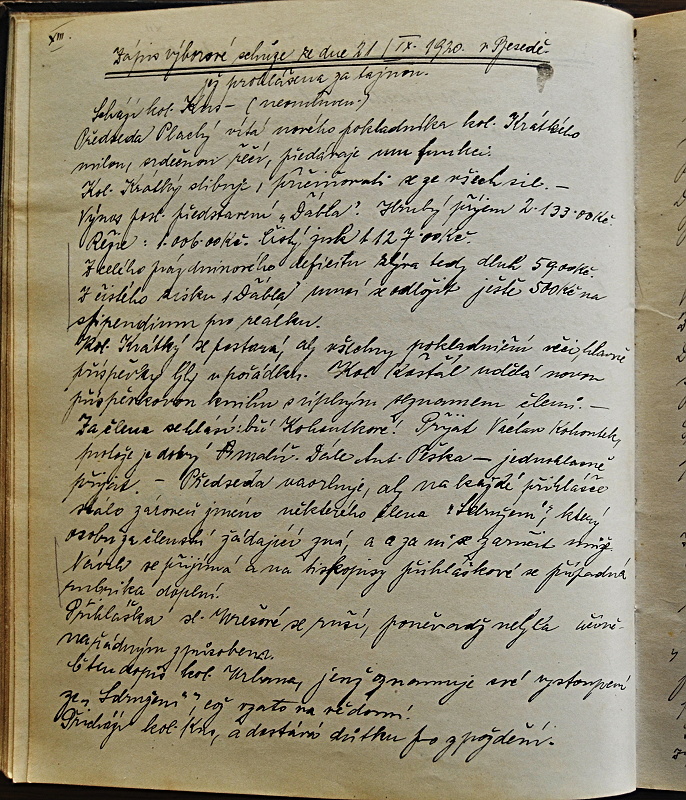 XIII.
Zápis výborové schůze ze dne 21/IX. 1920. v Besedě
jež prohlášena za tajnou.
Schází kol. Kus – (neomluven.)
Předseda Plachý vítá nového pokladníka kol. Krátkého
milou, srdečnou řečí, předávaje mu funkci.
Kol. Krátký slibuje, přičiňovati se ze všech sil. –
Výnos posl. představení „Ďábla". Hrubý příjem 2.133.00 Kč.
Režie: 1.006.00 Kč. Čistý zisk 1127.00 Kč.
Z celého prázdninového deficitu zbývá tedy dluh 590.00 Kč
Z čistého zisku „Ďábla" musí se odložit ještě 500 Kč na
stipendium pro realku.
Kol. Krátký se postará, aby všechny pokladniční věci hlavně
příspěvky byly v pořádku. Kol. Košťál udělá novou
příspěvkovou knihu s úplným seznamem členů. –
Za člena se hlásí: bří Kohoutkové! Přijat Václav Kohoutek,
protože je dobrý malíř. Dále Ant. Peška – jednohlasně
přijat. – Předseda navrhuje, aby na každé přihlášce
stálo zároveň jméno některého člena „Sdružení", který
osobu za členství žádající zná, a za ni se zaručit může.
Návrh se přijímá a na tiskopisy přihláškové se případná
rubrika doplní.
Přihláška sl. se ruší, poněvadž nebyla učině-
na řádným způsobem.
Čten dopis kol. Urbana, jenž oznamuje své vystoupení
ze „Sdružení", což vzato na vědomí.
Přichází kol. Kus, a dostává důtku pro zpoždění.